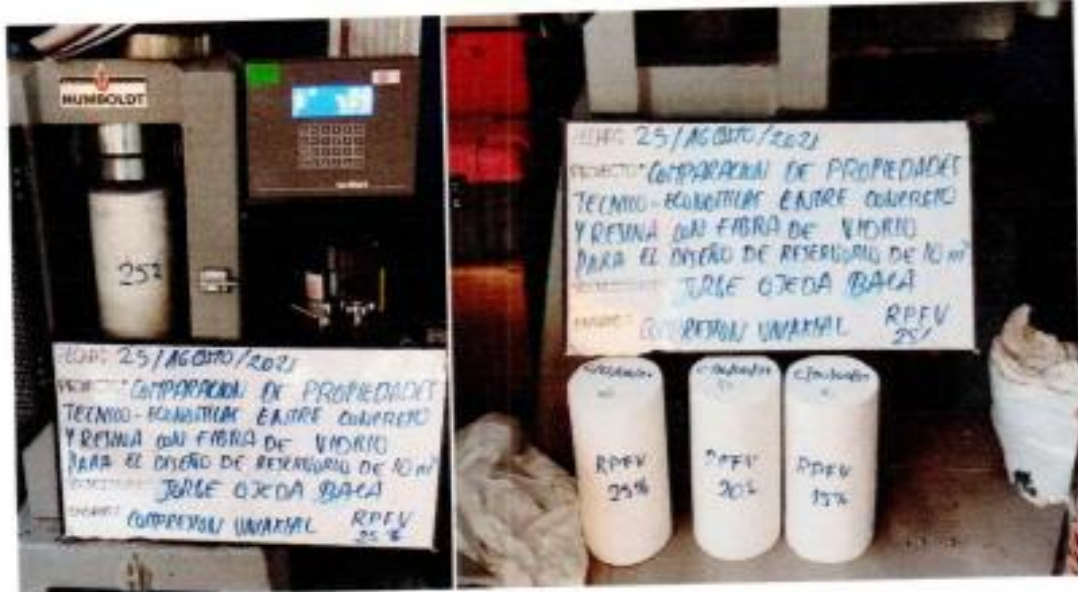 HUMBOLDT
25%
FECHA: 25/AGOSTO/2021
PROYECTO: "COMPARACION DE PROPIEDADES
TECNICO-ECONOMICAS ENTRE CONCRETO
Y RESINA CON FIBRA DE VIDRIO
PARA EL DISEÑO DE RESERVORIO DE 10 m³
JORGE OJEDA BACA
ENSAYO: COMPRESION UNIAXIAL RPFV
25%
FECHA: 25/AGOSTO/2021
PROYECTO: "COMPARACION DE PROPIEDADES
TECNICO-ECONOMICAS ENTRE CONCRETO
Y RESINA CON FIBRA DE VIDRIO
PARA EL DISEÑO DE RESERVORIO DE 10 m³
JORGE OJEDA BACA
ENSAYO: COMPRESION UNIAXIAL RPFV
25%
RPFV
25%
RPFV
20%
RPFV
15%